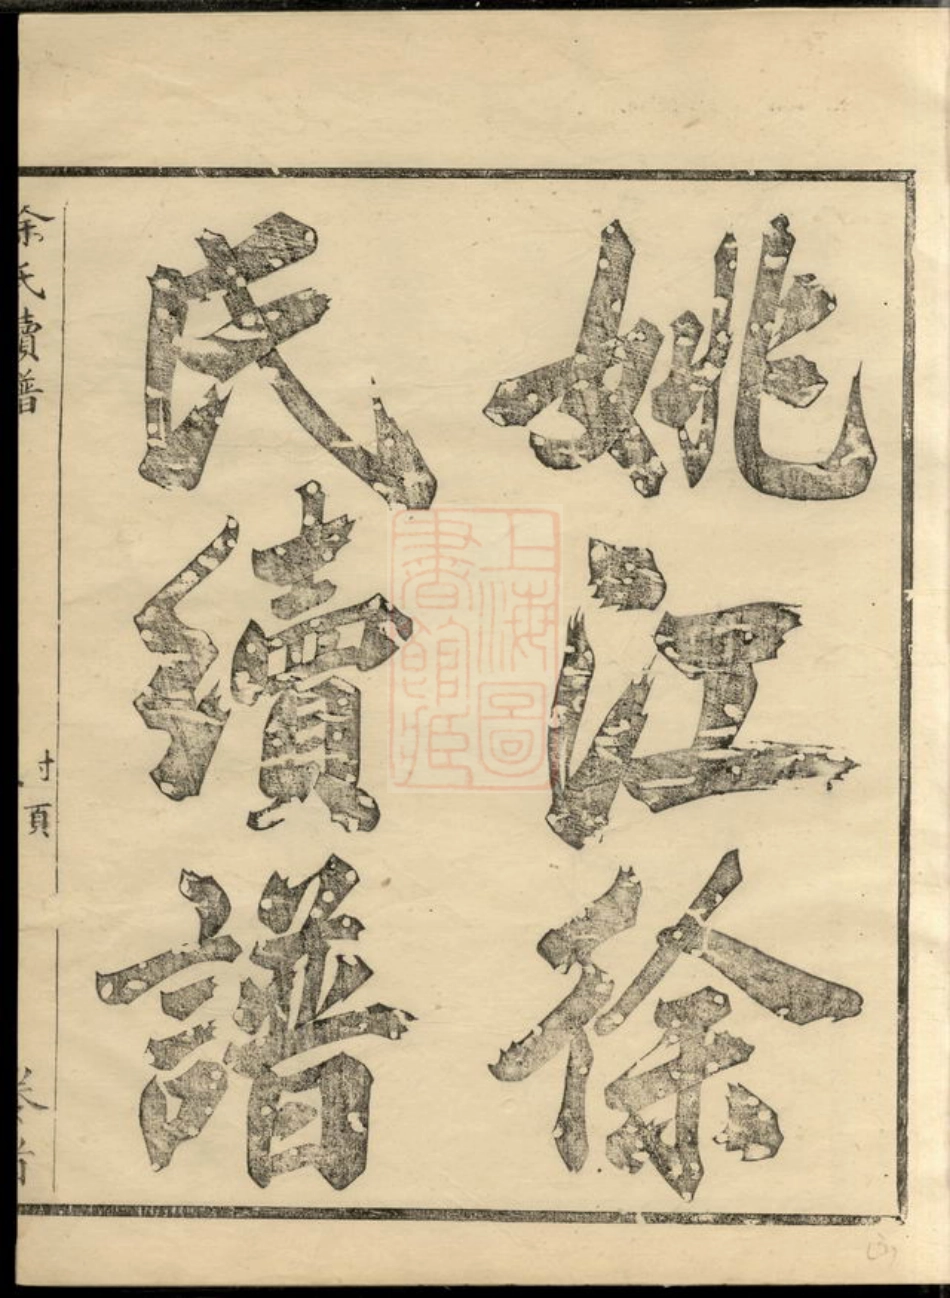 姚江徐
氏續譜
徐氏續譜
卷首
封頁
上海圖
書館藏